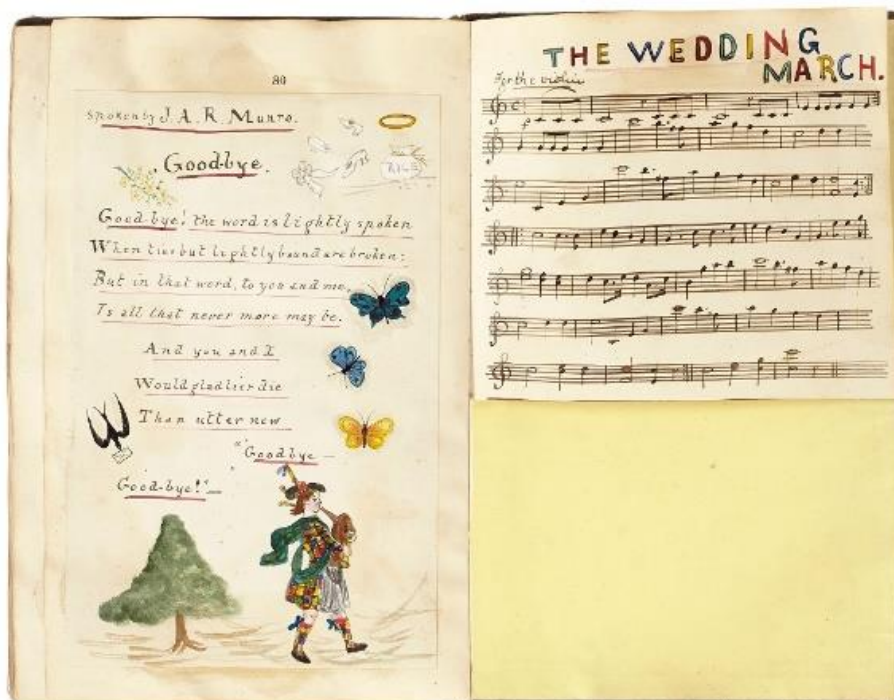 86
spoken by J. A. R. Munro.
Good-bye.
Good-bye! the word is lightly spoken
When ties but lightly bound are broken:
But in that word, to you and me,
Is all that never more may be.
And you and I
Would gladlier die
Than utter now
"Goodbye —
Good-bye!" —
THE WEDDING
MARCH.
For the violin